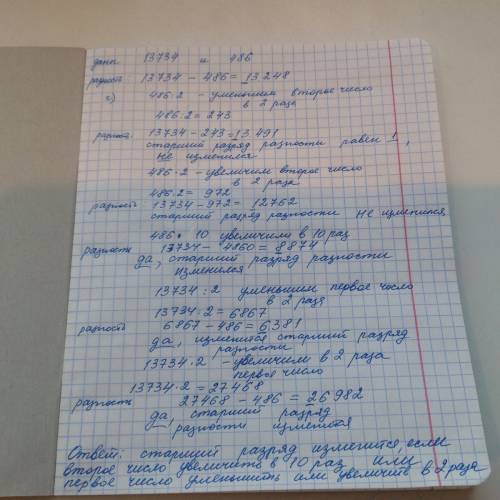 данн 13734 и 486
разность 13734 - 486 = 13248
с) 486:2 - уменьшим второе число
в 2 раза
486:2 = 243
разность. 13734 - 243 = 13491
старший разряд разности равен 1,
не изменился
486·2 - увеличим второе число
в 2 раза
486·2 = 972
разность 13734 - 972 = 12762
старший разряд разности не изменился
486·10 увеличим в 10 раз
разность 13734 - 4860 = 8874
да, старший разряд разности
изменился
13734:2 уменьшим первое число
в 2 раза
13734:2 = 6867
разность 6867 - 486 = 6381
да, изменился старший разряд
разности
13734·2 - увеличим в 2 раза
первое число
13734·2 = 27468
разность 27468 - 486 = 26982
да, старший разряд
разности изменился
Ответ: старший разряд изменится, если
второе число увеличить в 10 раз или
первое число уменьшить или увеличить в 2 раза